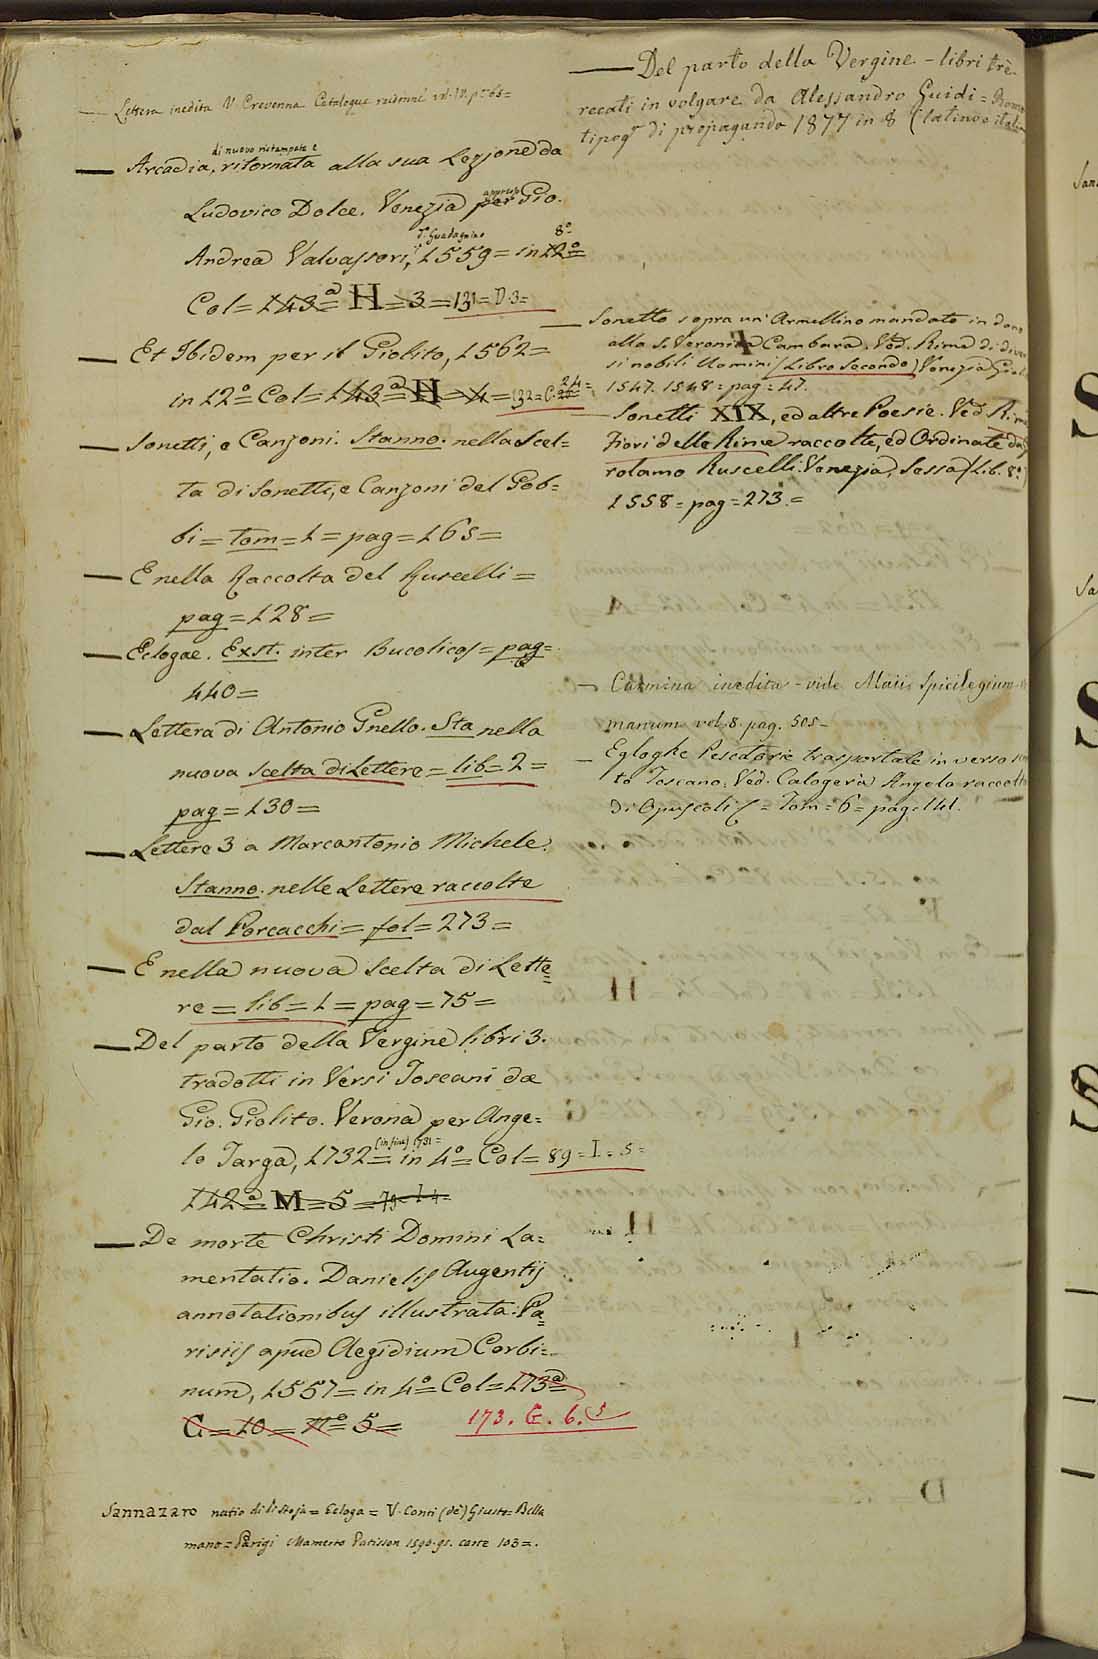 — Lettera inedita V. Crevenna Catalogue
— Arcadia, di nuovo ristampata e ritornata alla sua Lezione da
Ludovico Dolce. Venezia per appresso Gio.
Andrea Valvassori, d.º Guadagnino 1559 = in 12º = 8º
Col = 143ª = H = 3 = 131 = D.3 =
— Et Ibidem per il Giolito, 1562 =
in 12º = Col = 143ª = H = 4 = 132 = C. 24 =
— Sonetti, e Canzoni. Stanno. nella Scel=
ta di Sonetti, e Canzoni del Gob=
bi = tom = 1 = pag = 165 =
— E nella Raccolta del Ruscelli =
pag = 128 =
— Eclogae. Exst. inter Bucolicos = pag =
440 =
— Lettera di Antonio Gnello. Sta nella
nuova scelta di Lettere = lib = 2 =
pag = 130 =
— Lettere 3 a Marcantonio Michele.
Stanno. nelle Lettere raccolte
dal Porcacchi = fol = 273 =
— E nella nuova Scelta di Lette=
re = lib = 1 = pag = 75 =
— Del parto della Vergine libri 3.
tradotti in Versi Toscani da
Gio. Giolito. Verona per Ange=
lo Targa, 1732 = (in fine) 1731 = in 4º = Col = 89 = I = 5 =
142ª = M = 5 = 79 = I 4 =
— De morte Christi Domini La=
mentatio. Danielis Augentij
annotationibus illustrata. Pa=
risiis apud Aegidium Corbi=
num, 1557 = in 4º = Col = 173ª =
G = 10 = nº = 5 = 173. G. 6. 5
Sannazaro natio di Pistoja = Ecloga = V. Conti (de') Giusto = Bella
mano = Parigi Mamerto Patisson carte 103 =.
— Del parto della Vergine - libri tre
recati in volgare da Alessandro Guidi = Roma
tipogr. di propaganda 1877 in 8 (latino e
— Sonetto sopra un' Armellino mandato in dono
alla S. Veronica Cambara. Ved. Rime di
si nobili Uomini (Libro Secondo) Venezia
1547. 1548 = pag = 47.
— Sonetti XIX, ed altre Poesie. Ved.
Fiori delle Rime raccolte, ed Ordinate da
rolamo Ruscelli. Venezia, Sessa (Lib. 8º)
1558 = pag = 273. =
— Carmina inedita - vide Maii Spicilegium
manum vol. 8. pag. 505 -
— Egloghe Pescatorie trasportate in verso
to Toscano. Ved. Calogerà Angelo raccolta
di Opuscoli &c = Tom = 6 = pag. 141.